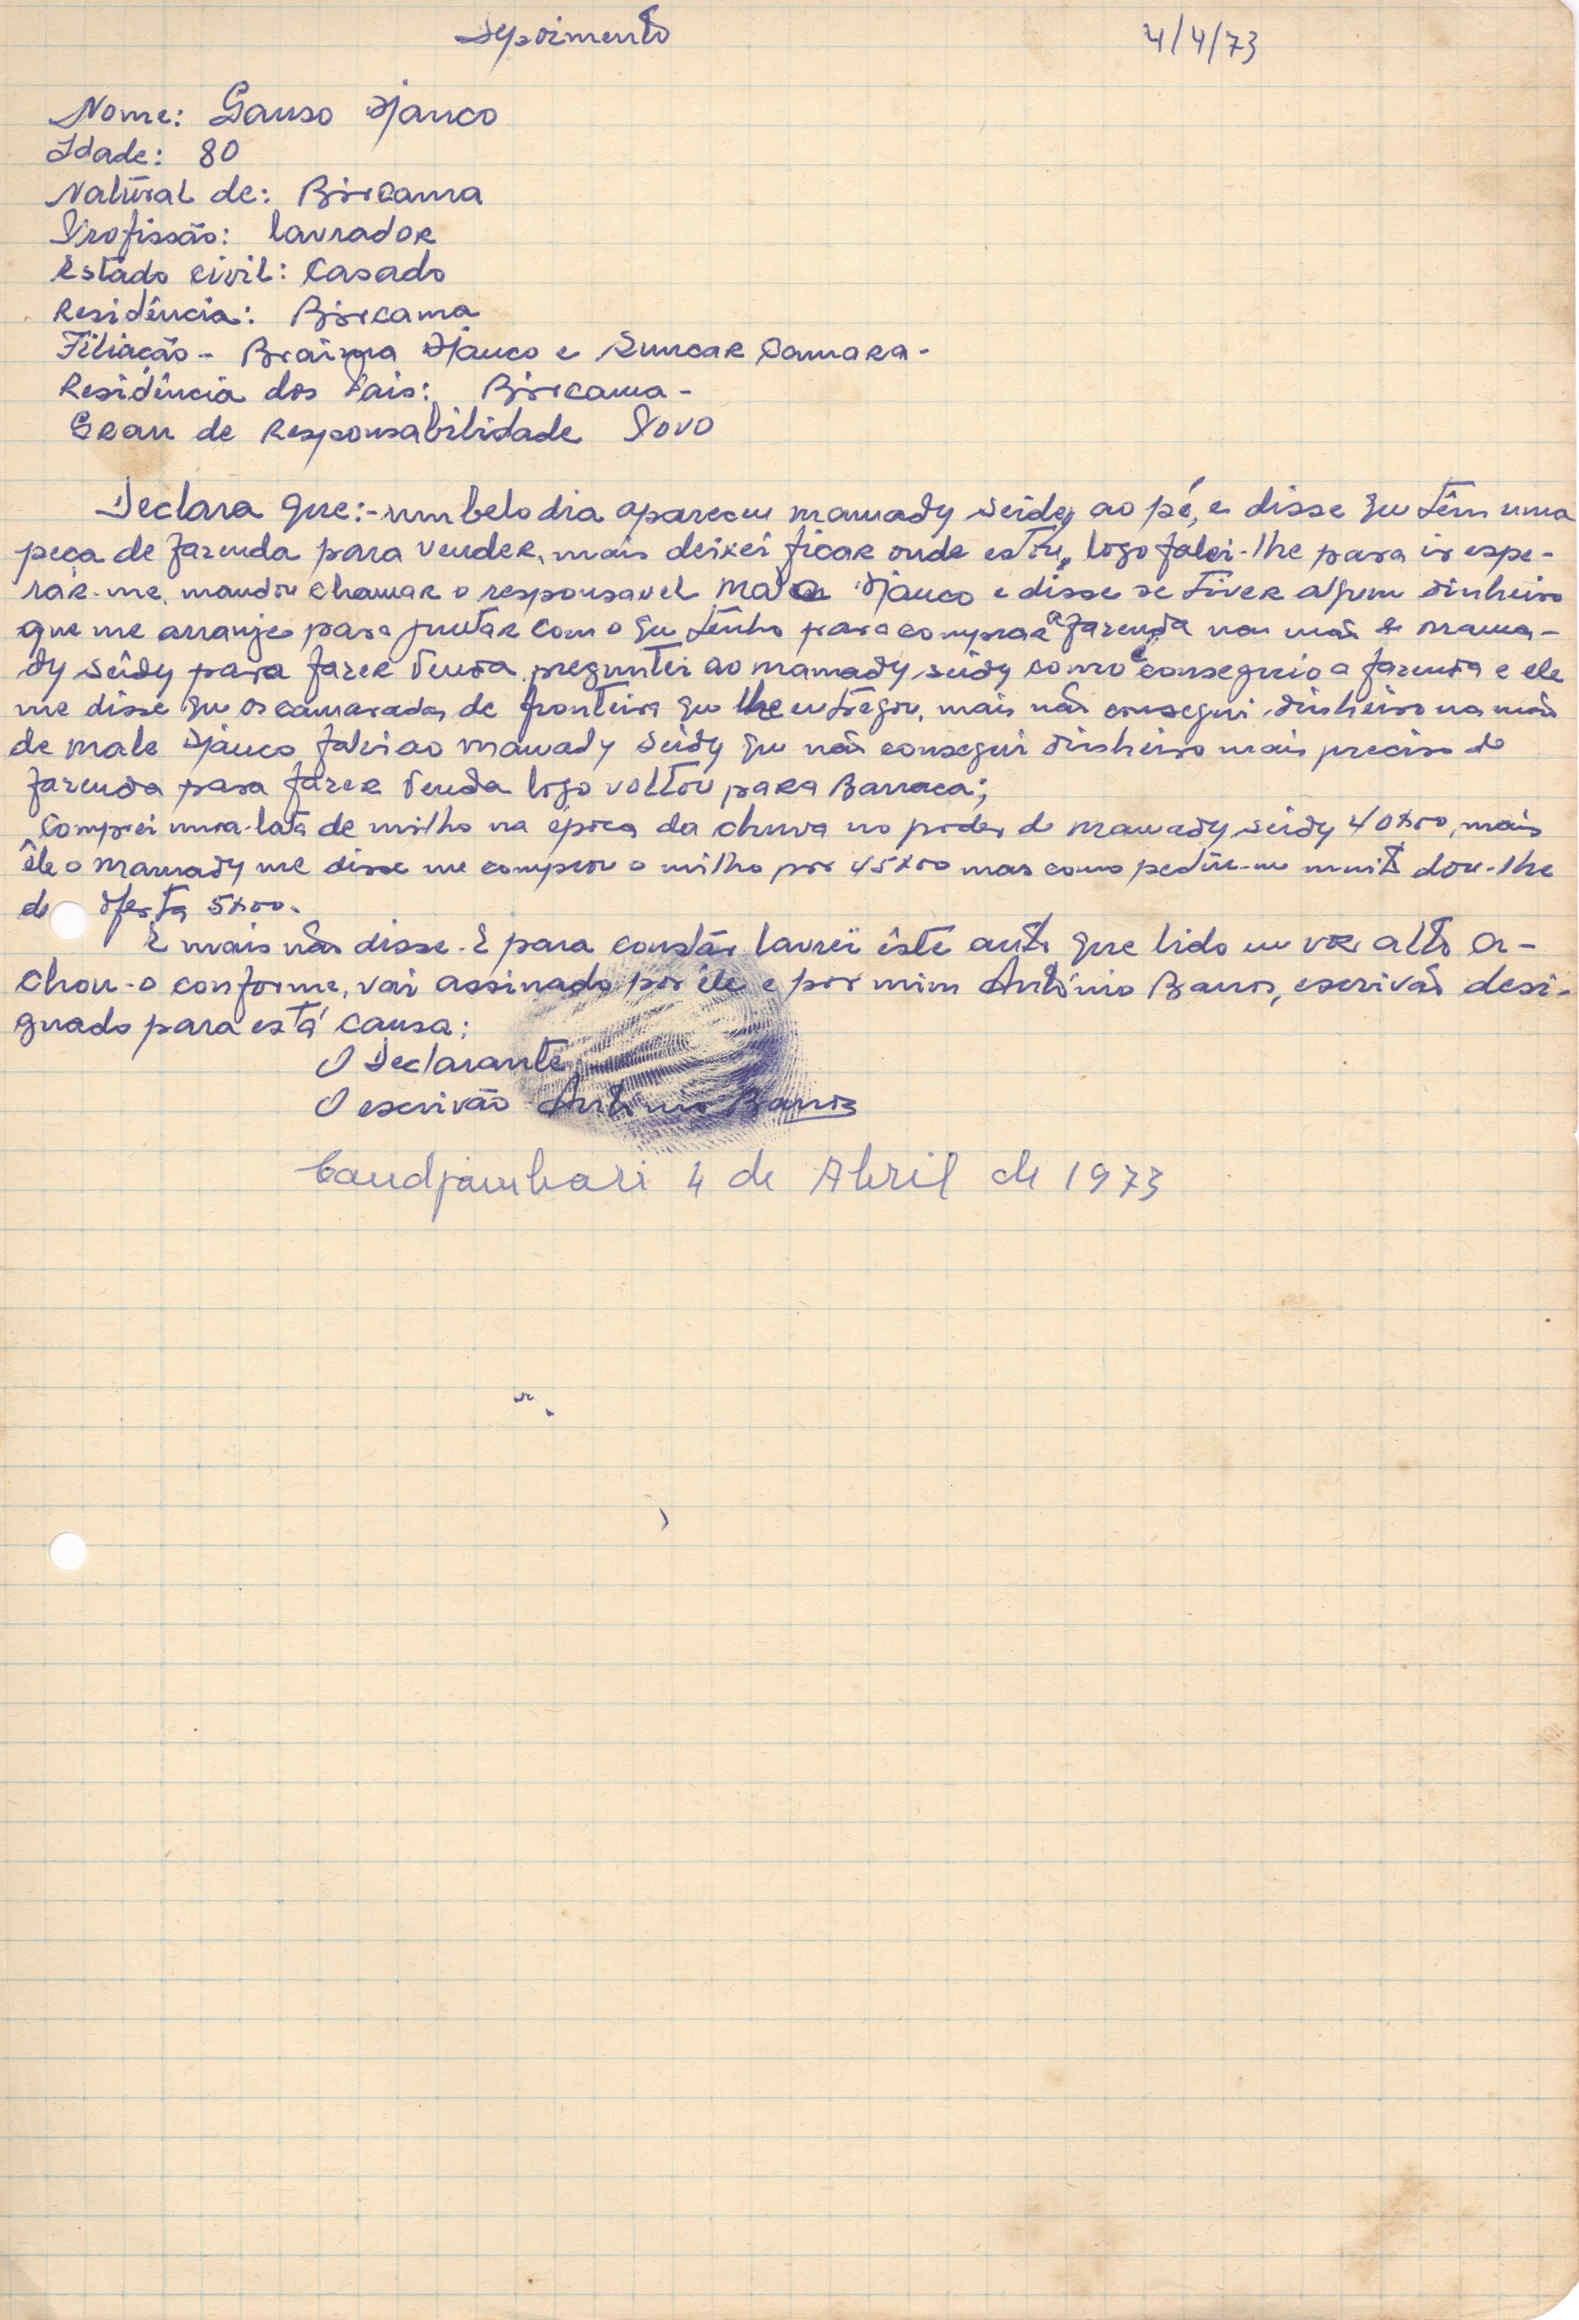 Depoimento 4/4/73
Nome: Sanso Djanco
Idade: 80
Natural de: Bircama
Profissão: lavrador
Estado civil: Casado
Residência: Bircama
Filiação - Braima Djanco e Suncar Camara -
Residência dos Pais: Bircama -
Grau de Responsabilidade Povo
Declara que:- num belo dia apareceu mamady seidy ao pé, e disse que têm uma
peça de fazenda para vender, mais deixei ficar onde estou, logo falei-lhe para ir espe-
rár-me, mandou chamar o responsavel Mala Djanco e disse se tiver algum dinheiro
que me arranje para juntar com o que tenho para comprar a fazenda na mão de mama-
dy seidy para fazer venda preguntei ao mamady seidy como é conseguio a fazenda e ele
me disse que os camaradas de fronteira que lhe entregou, mais não consegui dinheiro na mão
de male Djanco falei ao mamady seidy que não consegui dinheiro mais preciso de
fazenda para fazer venda logo voltou para Barraca;
Comprei uma lata de milho na época da chuva no poder de mamady seidy 40$00, mais
êle o mamady me disse me comprou o milho por 45$00 mas como pediu-me muito dou-lhe
de oferta 5$00.
E mais não disse. E para constar lavrei êste auto que lido em voz alto a-
chou-o conforme, vai assinado por êle e por mim António Barros, escrivão desi-
gnado para está causa:
O Declarante
O escrivão António Barros
Candjambari 4 de Abril de 1973